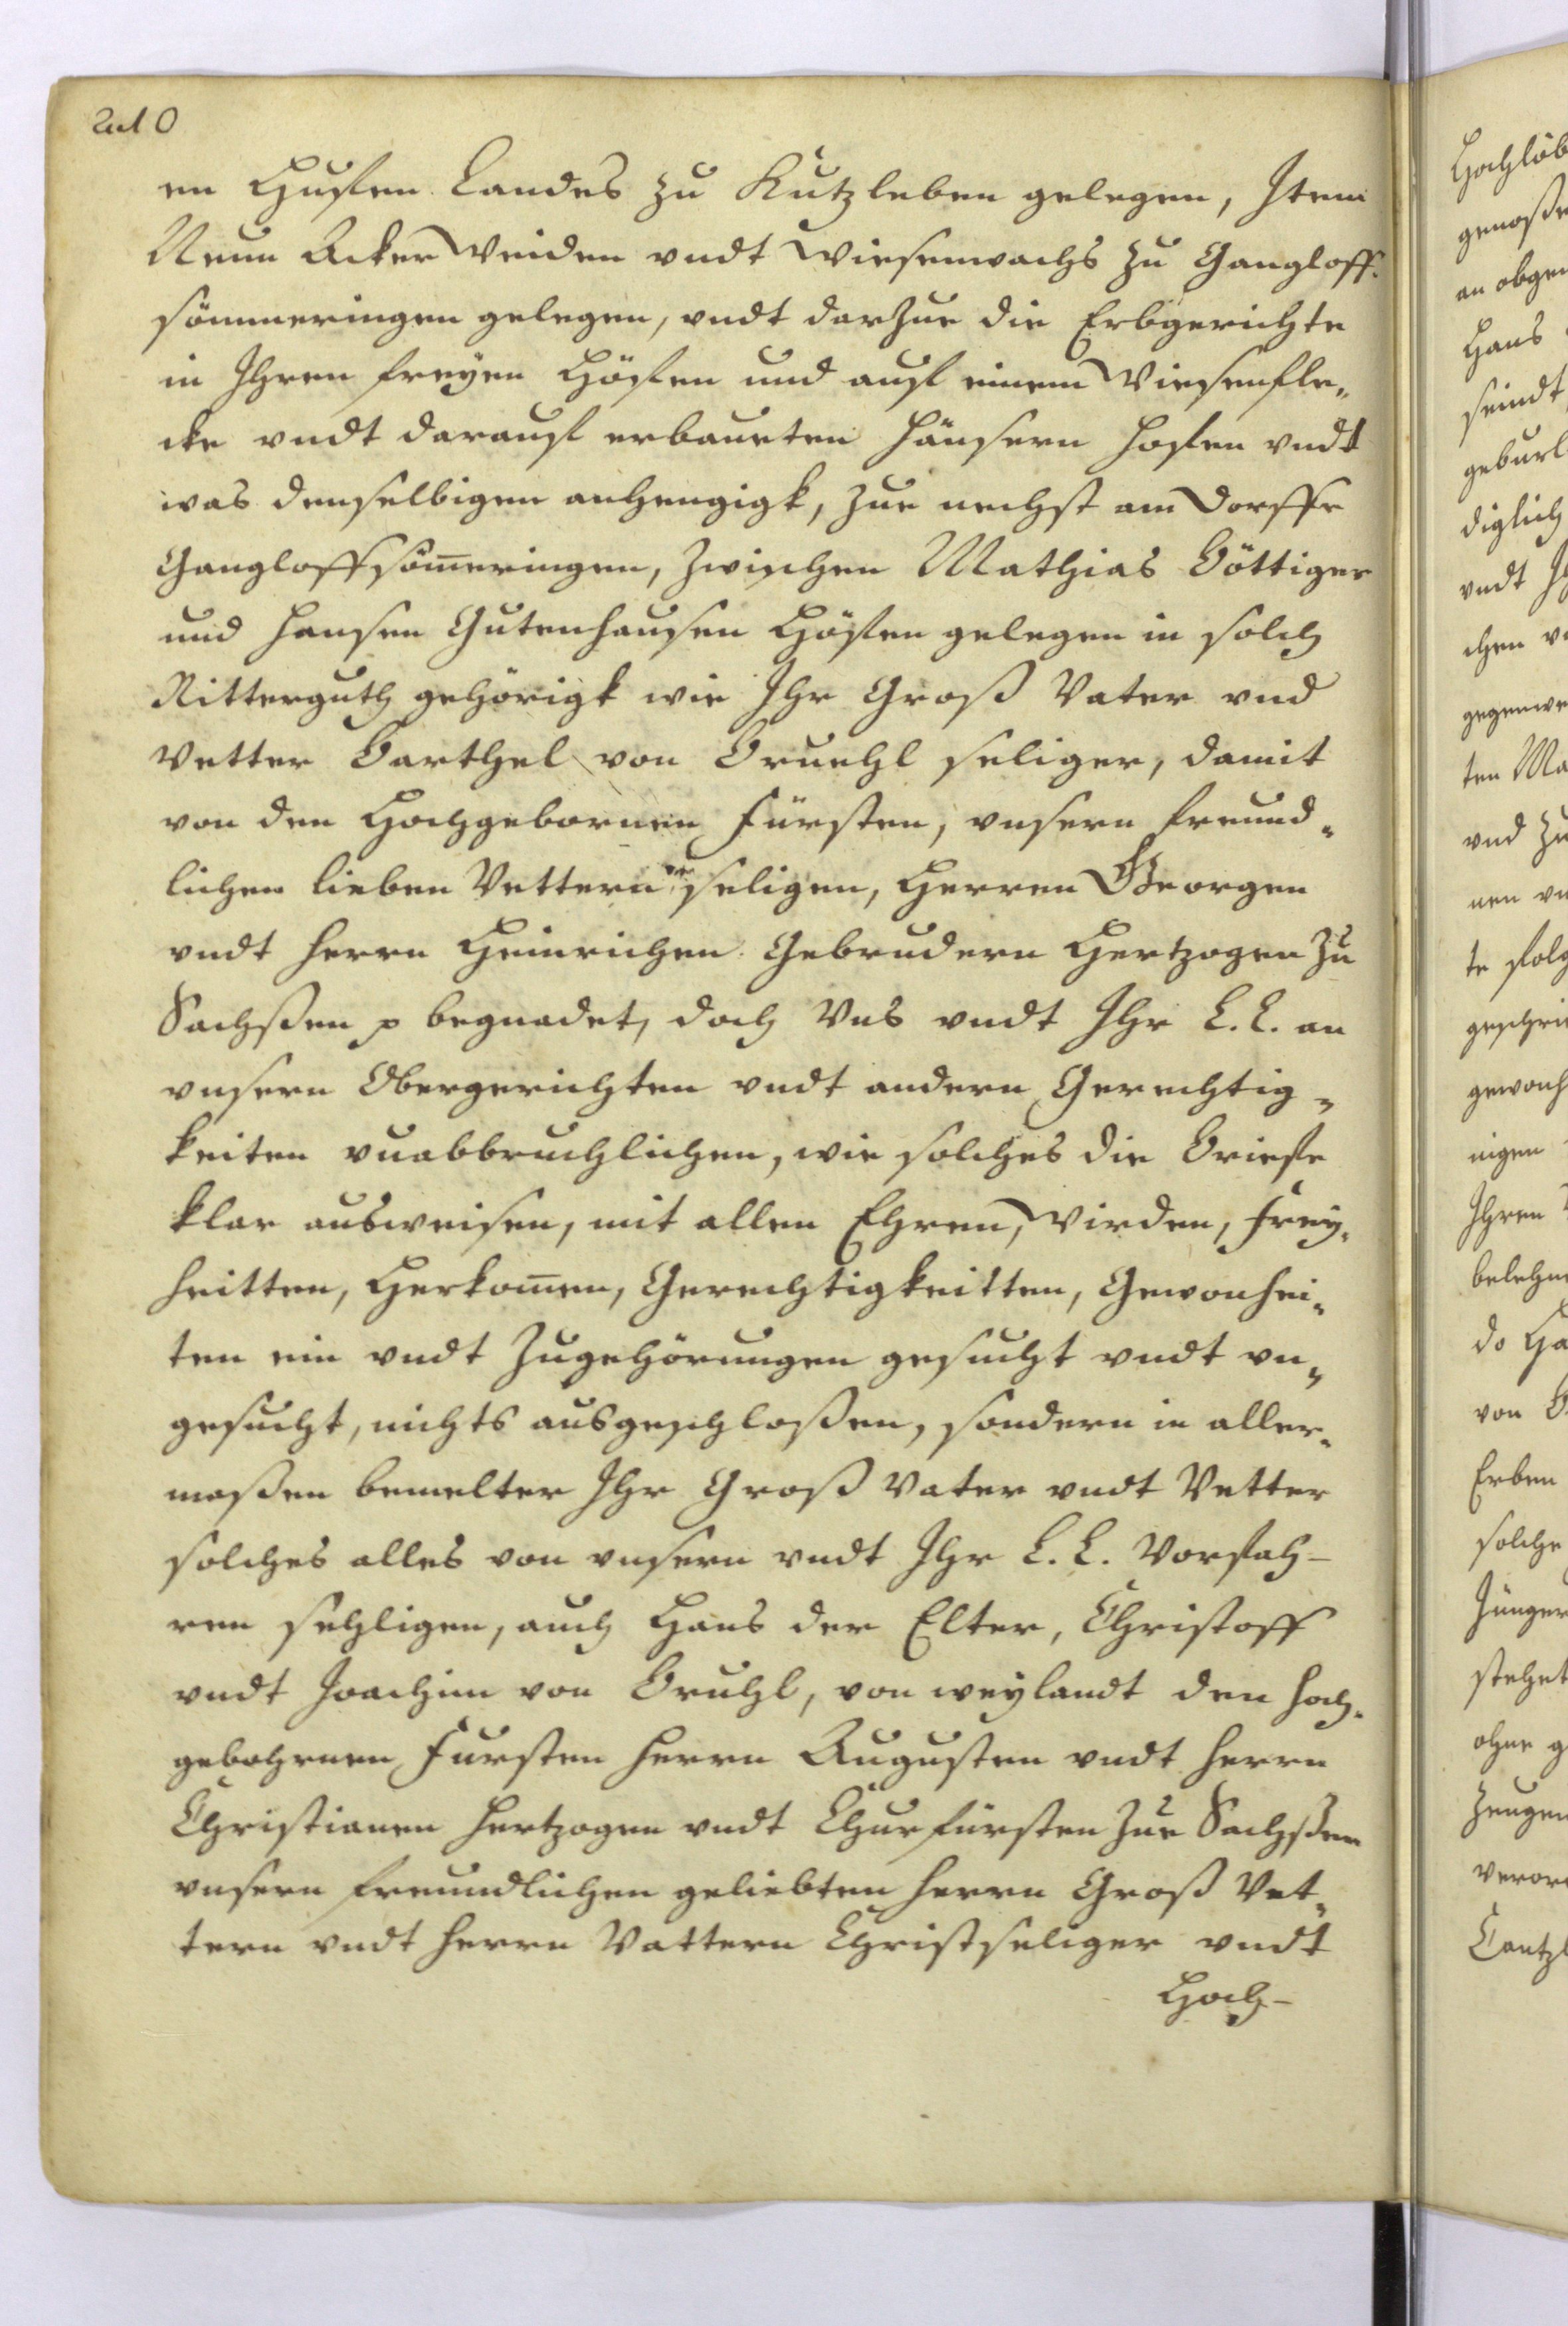 en Huffen Landes zu Kutzleben gelegen, Item
Neun Acker Weiden vndt Wiesenwachs zu Gangloff-
sömmeringen gelegen, vndt darzue die Erbgerichte
in Ihren freyen Höffen und auff einem Wiesenfle-
cke vndt darauff erbaueten Häusern Hoffen vndt
was denselbigen anhengigk, zue nechst am Dorffe
Gangloffsömeringen, zwischen Mathias Böttiger
und Hansen Gutenhausen Höffen gelegen in solch
Ritterguth gehörigk wie Ihr Groß Vater vnd
Vetter Barthel von Bruehl seliger, damit
von den Hochgebornen Fürsten, vnsern freund-
lichen lieben Vettern seligen, Herren Georgen
vndt Herrn Heinrichen Gebrudern Hertzogen zu
Sachßen p begnadet, doch Vns vndt Ihr L. L. an
vnsern Obergerichten vndt andern Gerechtig-
keiten vnabbruchlichen, wie solches die Brieffe
klar ausweisen, mit allen Ehren, Wirden, Frey-
heitten, Herkomen, Gerechtigkeitten, Gewonhei-
ten ein vndt Zugehörungen gesucht vndt vn-
gesucht, nichts ausgeschloßen, sondern in aller-
maßen bemelter Ihr Groß Vater vndt Vetter
solches alles von vnsern vndt Ihr L. L. Vorfah-
ren sehligen, auch Hans der Elter, Christoff
vndt Joachim von Bruhl, von weylandt den Hoch-
gebohrnen Fursten Herrn Augusten vndt Herrn
Christianen Hertzogen vndt Churfürsten zue Sachßen
vnsern freundlichen geliebten Herrn Groß Vet-
tern vndt Herrn Vattern Christseliger vndt
Hoch-
Hochlöb
genoße
an obge
Hans
seindt
geburl
diglich
vndt Ih
chen v
gegenwe
ten Ma
vnd zu
nen vn
te folg
geschri
gewonh
nigen
Ihren
belehn
do Ha
von B
Erben
solche
Jünger
stehet
ohne g
Zeugen
veror
Cantzl